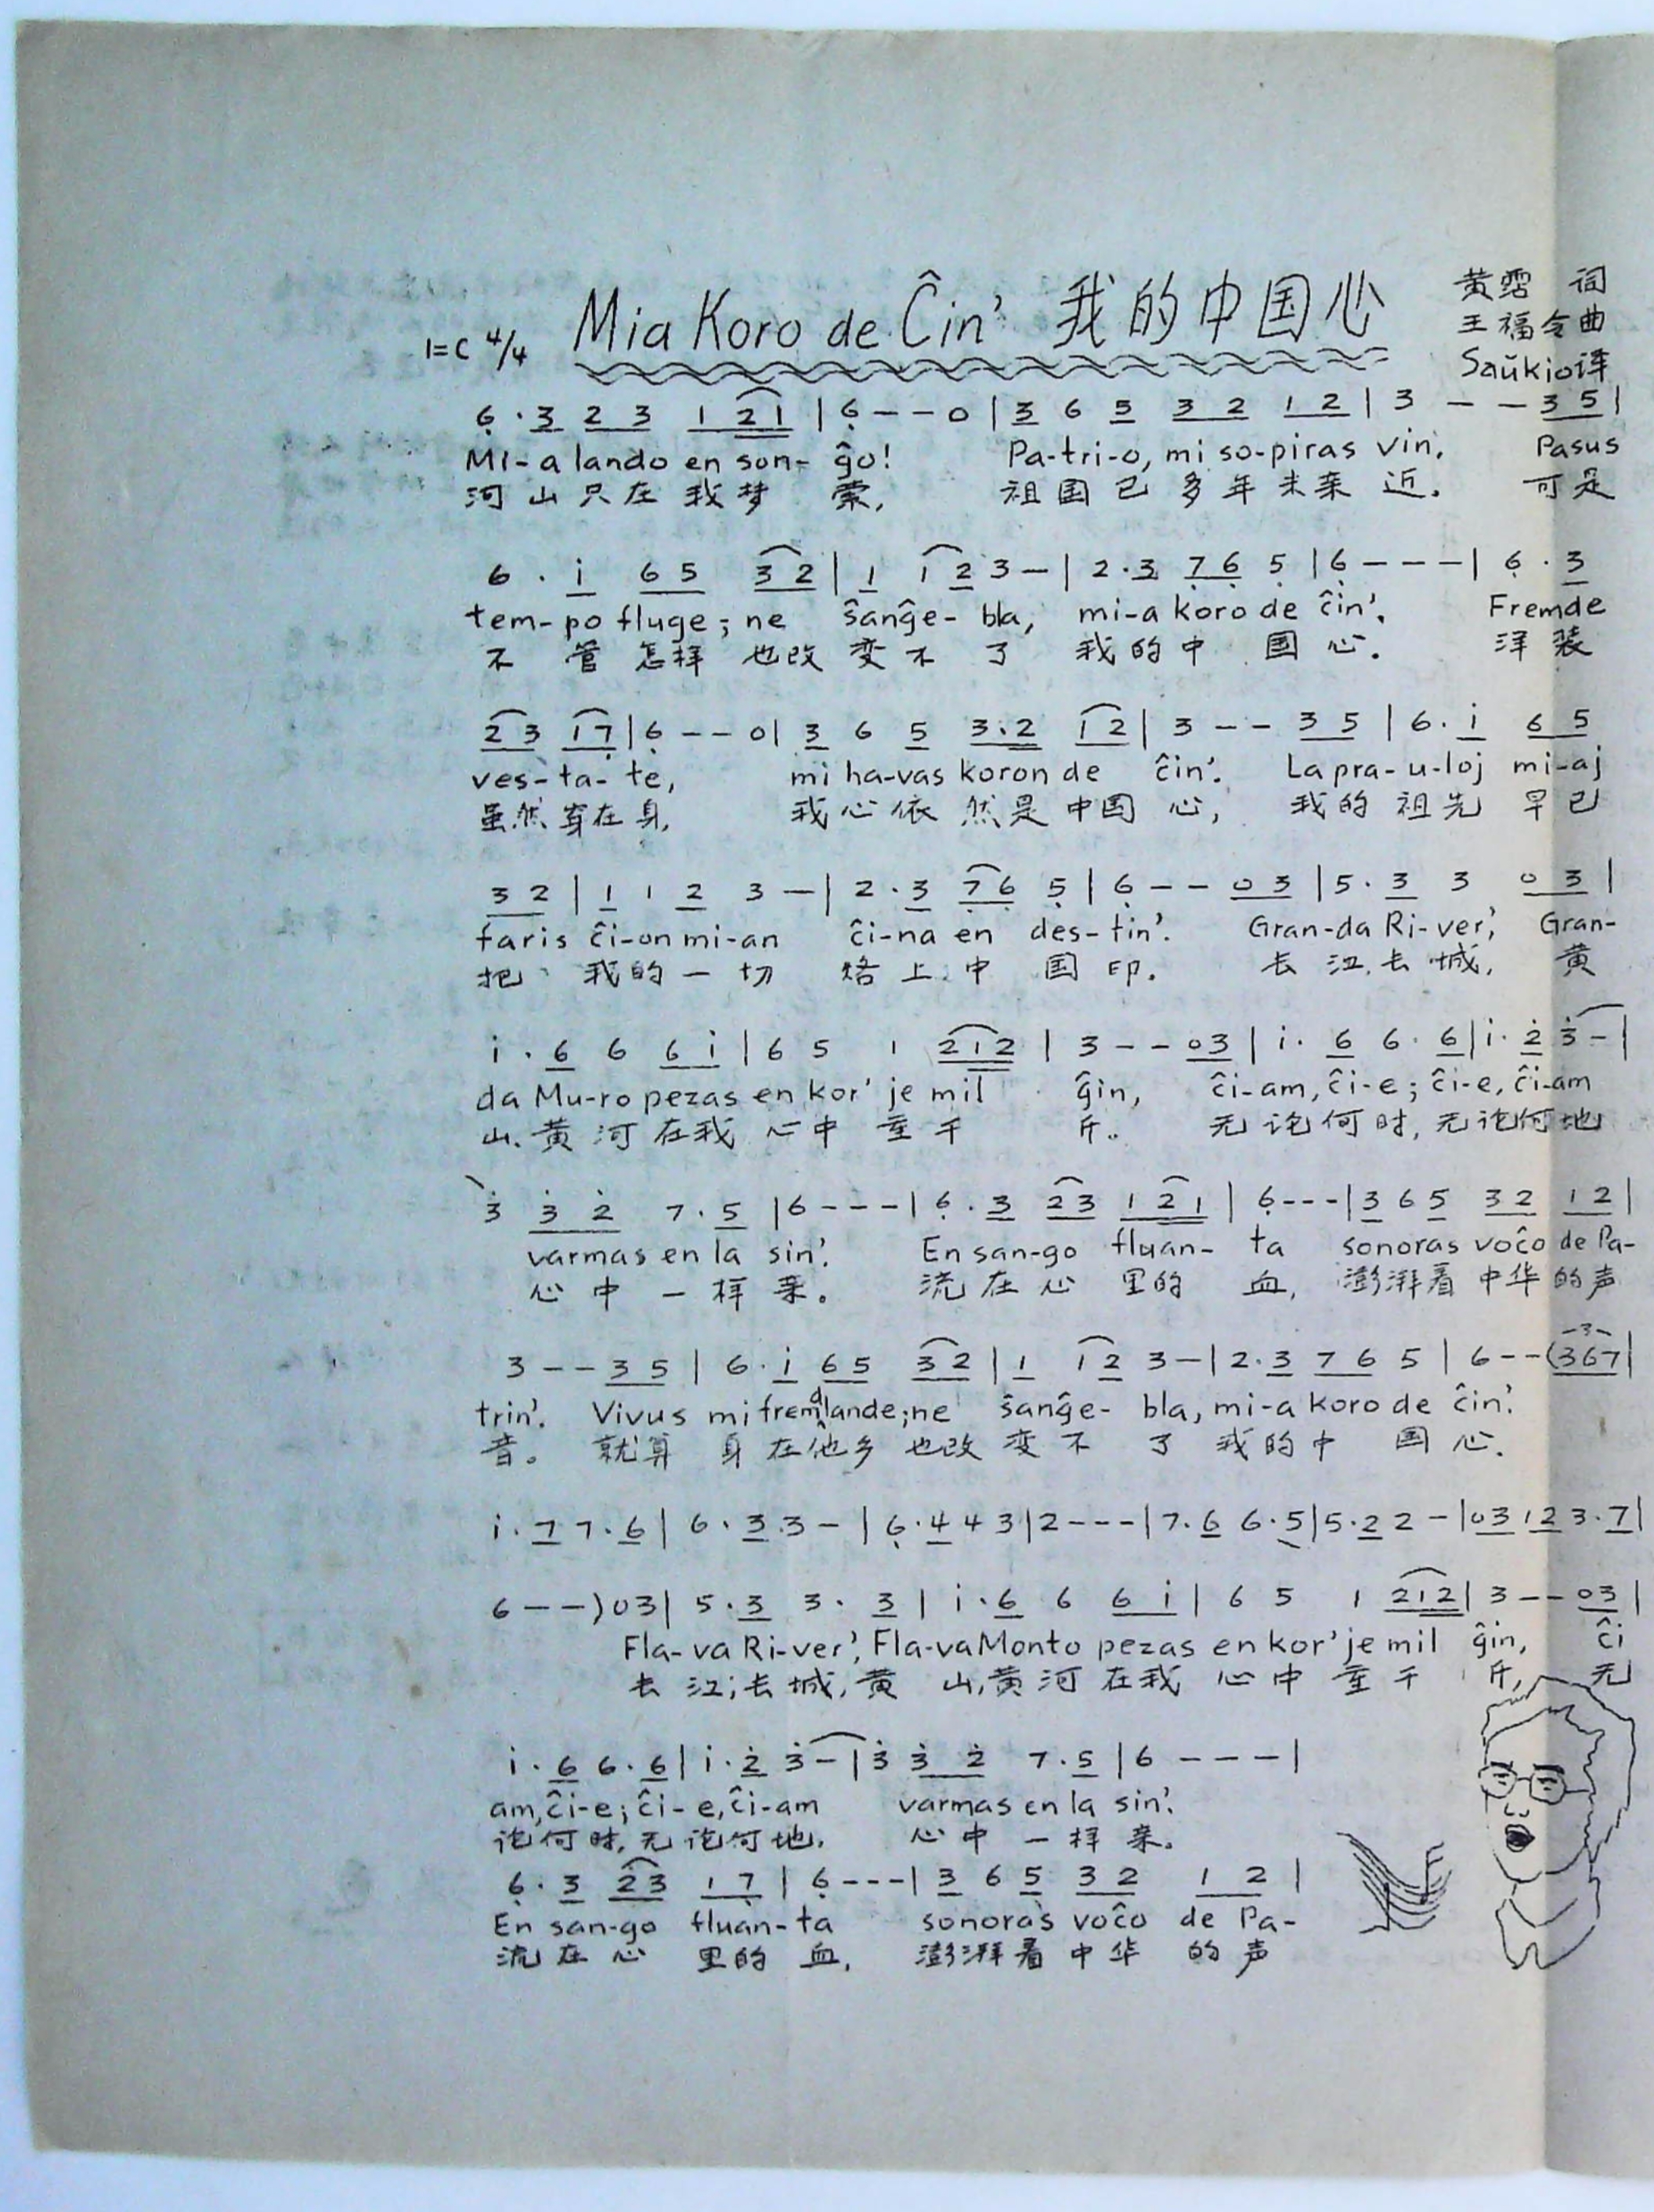 1=C 4/4 Mia Koro de Ĉin' 我的中国心
黄霑 词
王福令曲
Saŭkio译
6·3 2 3 1 2 1 | 6 - - 0 | 3 6 5 3 2 1 2 | 3 - - 3 5 |
Mi-a lando en son- ĝo! Pa-tri-o, mi so-piras vin. Pasus
河山只在我梦 萦, 祖国已多年未亲近. 可是
6 · i 6 5 3 2 | 1 1 2 3 - | 2·3 7 6 5 | 6 - - - | 6 · 3
tem-po fluge; ne ŝanĝe- bla, mi-a koro de ĉin'. Fremde
不管怎样也改变不了我的中国心. 洋装
2 3 1 7 | 6 - - 0 | 3 6 5 3·2 1 2 | 3 - - 3 5 | 6·i 6 5
ves-ta-te, mi ha-vas koron de ĉin'. La pra-u-loj mi-aj
虽然穿在身, 我心依然是中国心, 我的祖先早已
3 2 | 1 1 2 3 - | 2·3 7 6 5 | 6 - - 0 3 | 5·3 3 0 3 |
faris ĉi-on mi-an ĉi-na en des-tin'. Gran-da Ri-ver', Gran-
把我的一切烙上中国印. 长江,长城, 黄
i·6 6 6 i | 6 5 1 2 1 2 | 3 - - 0 3 | i· 6 6· 6 | i·2 3 - |
da Mu-ro pezas en kor' je mil ĝin, ĉi-am, ĉi-e; ĉi-e, ĉi-am
山、黄河在我心中重千斤。 无论何时, 无论何地
3 3 2 7·5 | 6 - - - | 6·3 2 3 1 2 1 | 6 - - - | 3 6 5 3 2 1 2 |
varmas en la sin'. En san-go fluan- ta sonoras voĉo de Pa-
心中一样亲。 流在心里的血, 澎湃着中华的声
3 - - 3 5 | 6·i 6 5 3 2 | 1 1 2 3 - | 2·3 7 6 5 | 6 - - (3 6 7 |
trin'. Vivus mi fremdlande; ne ŝanĝe- bla, mi-a koro de ĉin'.
音。 就算身在他乡也改变不了我的中国心.
i·7 7·6 | 6·3 3 - | 6·4 4 3 | 2 - - - | 7·6 6·5 | 5·2 2 - | 0 3 1 2 3·7 |
6 - - ) 0 3 | 5·3 3· 3 | i·6 6 6 i | 6 5 1 2 1 2 | 3 - - 0 3 |
Fla-va Ri-ver', Fla-va Monto pezas en kor' je mil ĝin, ĉi
长江;长城,黄山,黄河在我心中重千斤, 无
i·6 6·6 | i·2 3 - | 3 3 2 7·5 | 6 - - - |
am, ĉi-e; ĉi-e, ĉi-am varmas en la sin'.
论何时,无论何地, 心中一样亲。
6·3 2 3 1 7 | 6 - - - | 3 6 5 3 2 1 2 |
En san-go fluan-ta sonoras voĉo de Pa-
流在心里的血, 澎湃着中华的声